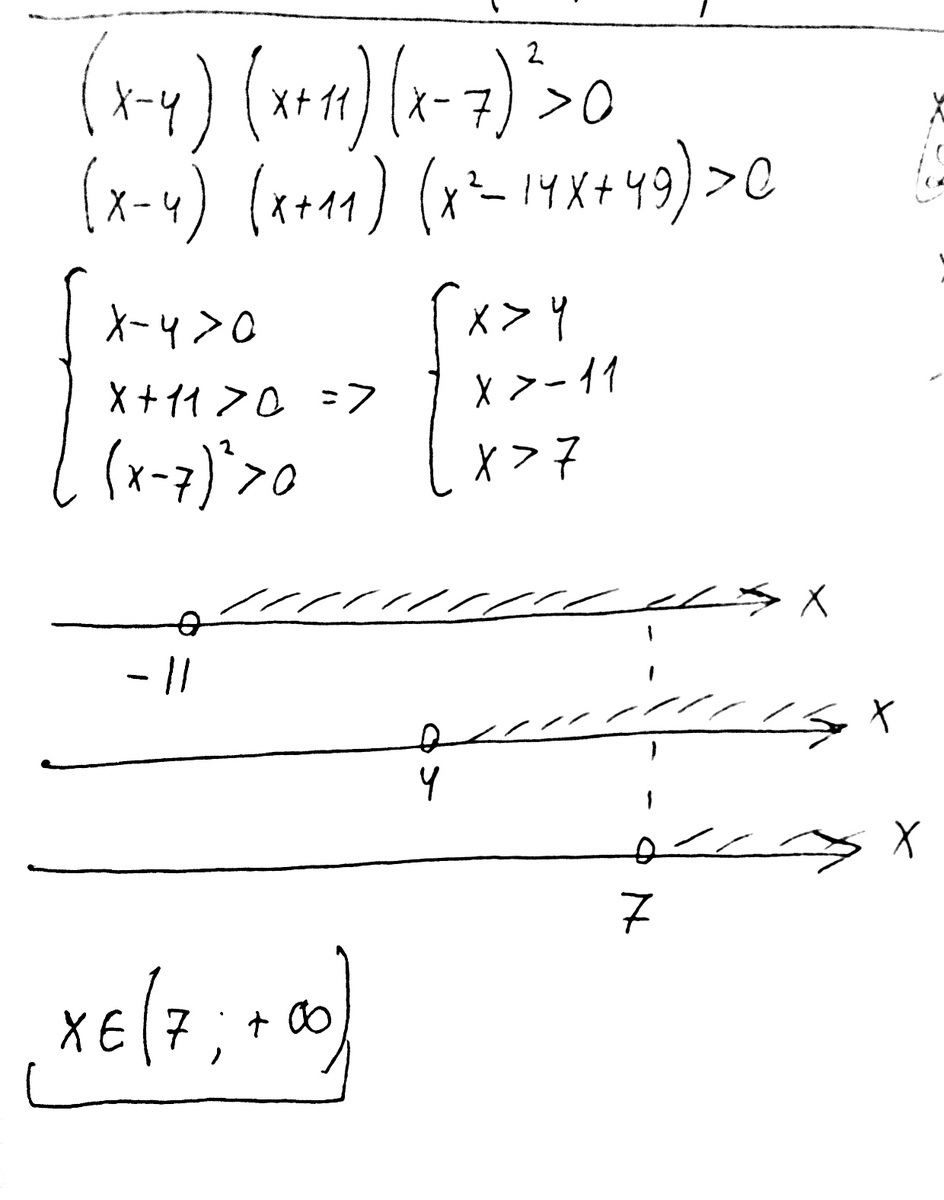 (x-4) (x+11) (x-7)² >0
(x-4) (x+11) (x²-14x+49)>0
{ x-4>0
x+11>0 =>
(x-7)²>0
{ x>4
x>-11
x>7
x
-11
x
4
x
7
x∈(7;+∞)